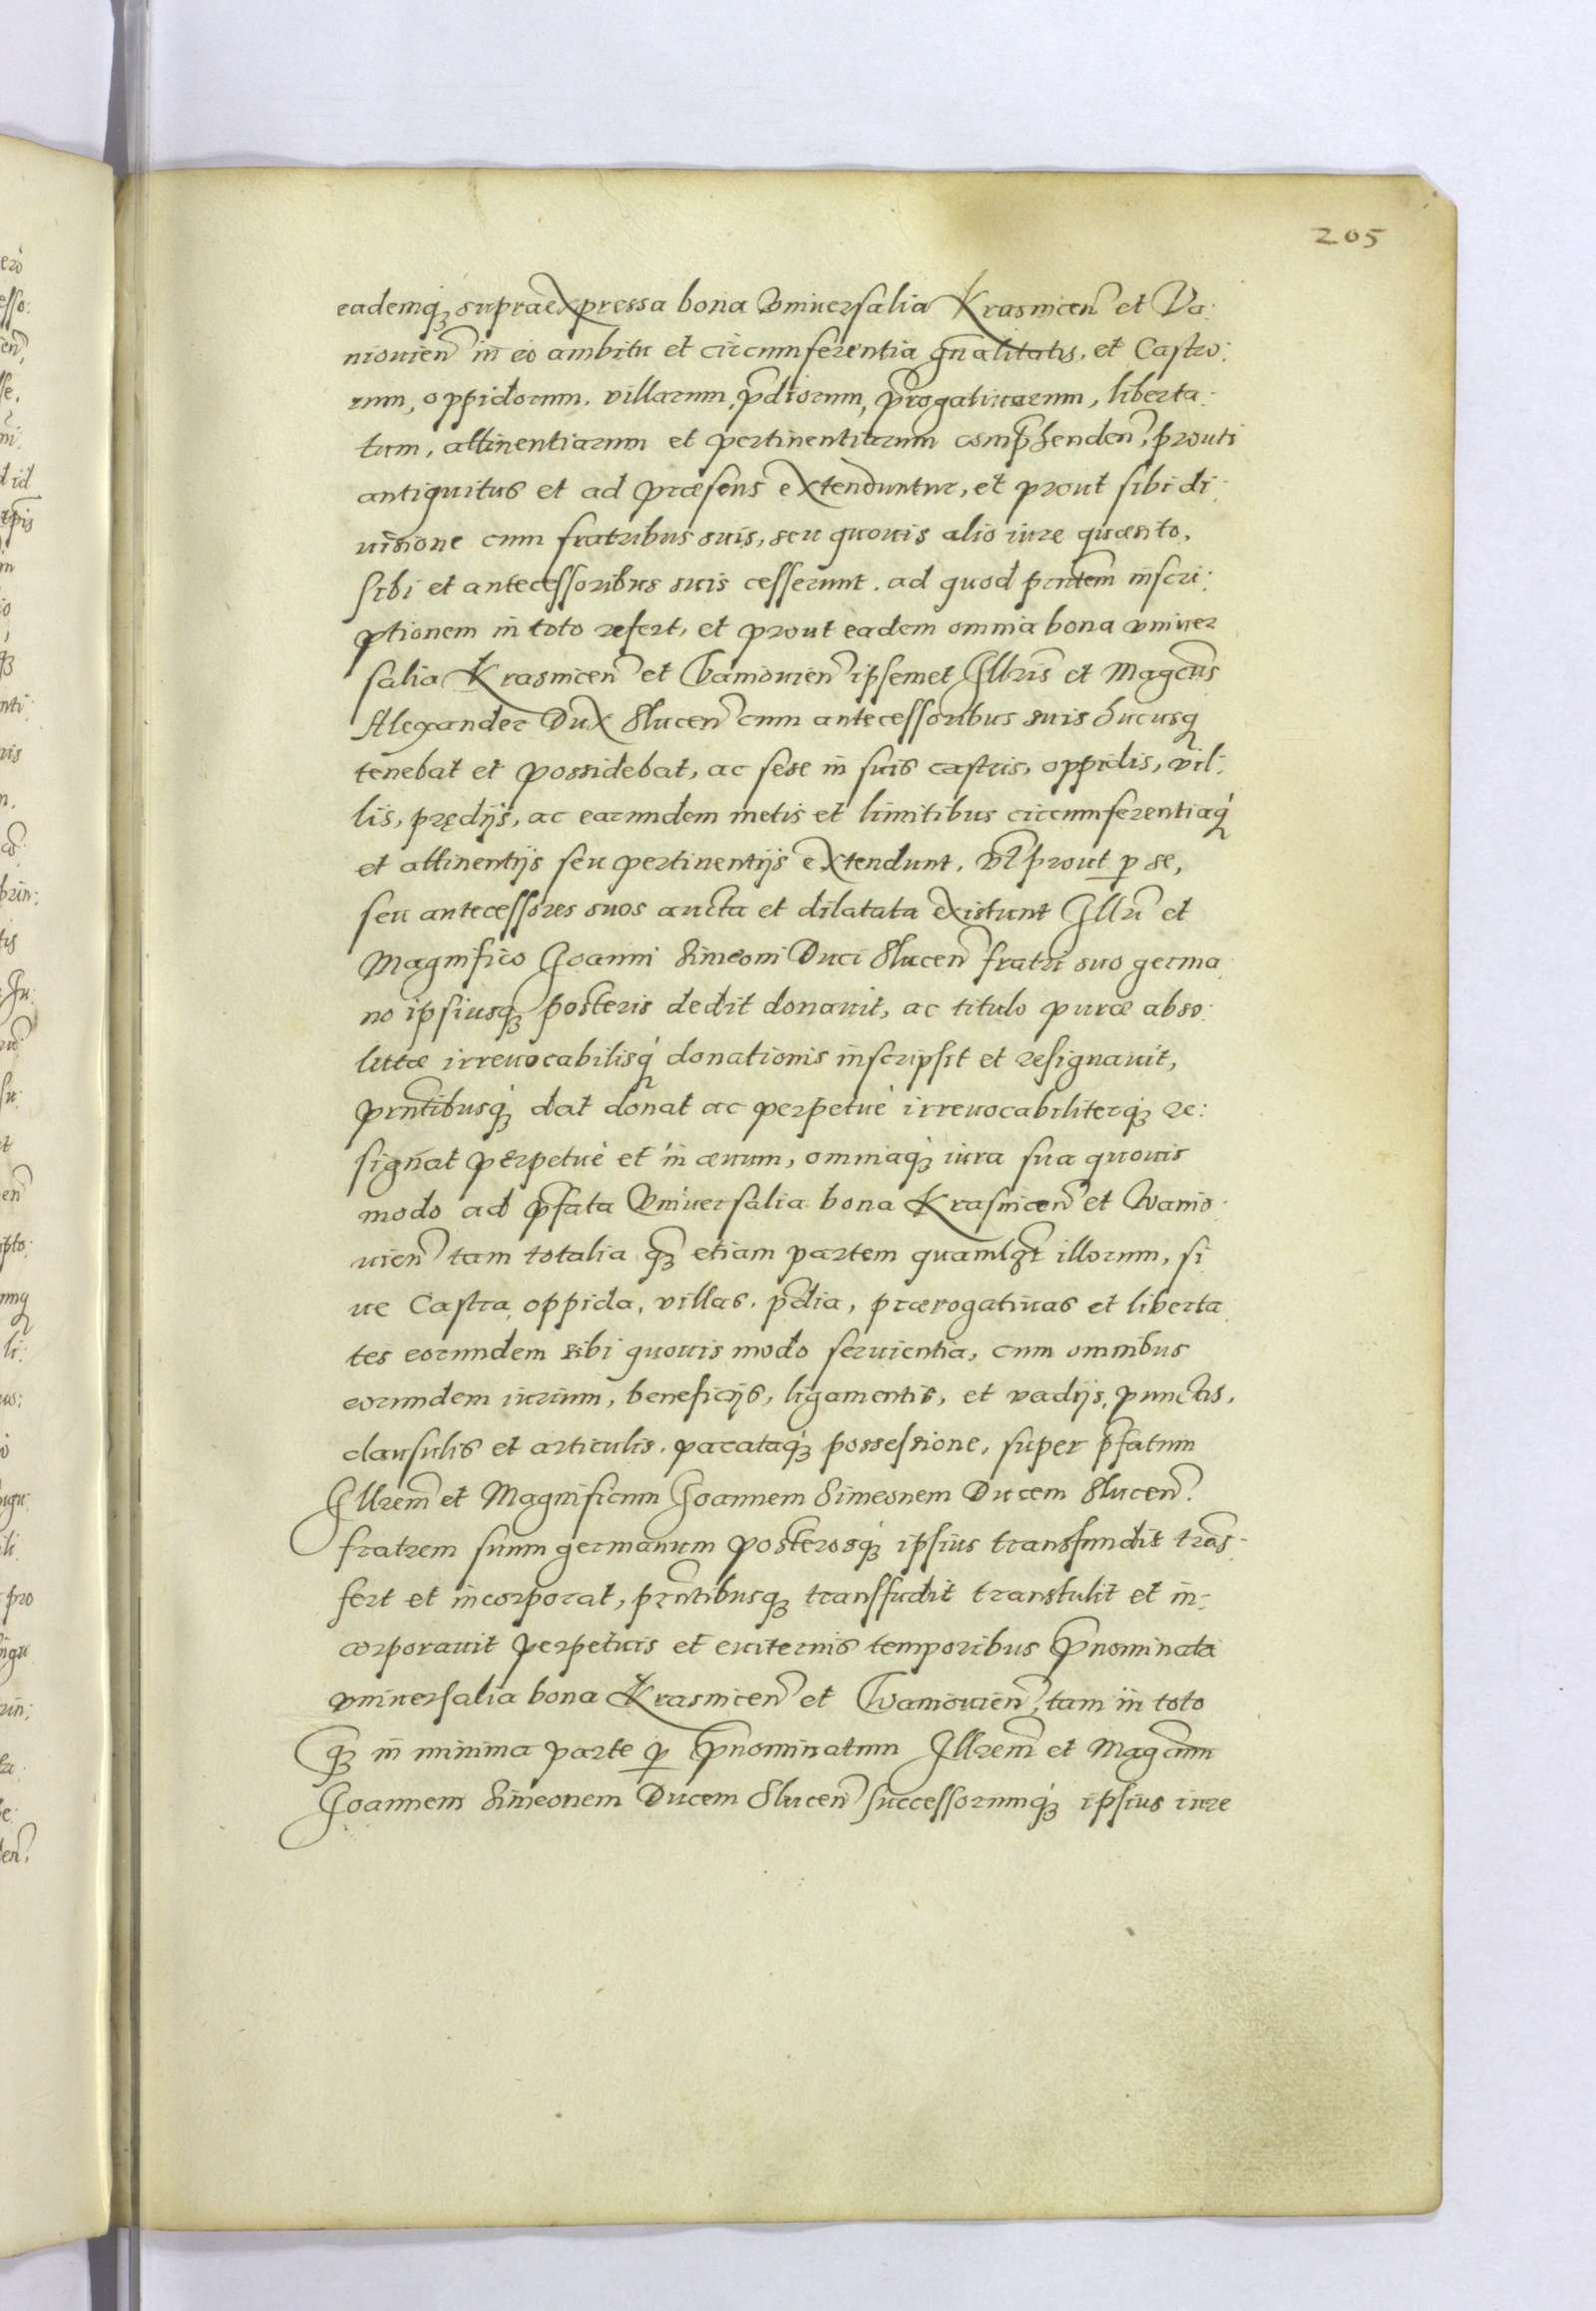 205
eademq́ꝫ supraexpressa bona Vniuersalia Krasnicen̄ et Va:
niouien̄ in eo ambitu et circumferentia gn̄alitatis, et Castro:
rum, oppidorum, villarum, p̄diorum, p̄rogatiuarum, liberta:
tum, attinentiarum et pertinentiarum comp̄henden̄, prouti
antiquitus et ad præsens extenduntur, et prout sibi di:
uisione cum fratribus suis, seu quouis alio iure quæsito,
sibi et antecessoribus suis cesserunt. ad quod pn̄tem inscri:
ptionem in toto refert, et prout eadem omnia bona vniuer
salia Krasnicen̄ et Waniouien̄ ipsemet Illris̄ et Magcus̄
Alexander Dux Slucen̄ cum antecessoribus suis hucusq
tenebat et possidebat, ac sese in suis castris, oppidis, vil:
lis, prędijs, ac earundem metis et limitibus circumferentiaq́
et attinentijs seu pertinentijs extendunt, vl̄ prout ꝑ se,
seu antecessores suos aucta et dilatata existunt Illri̅ et
Magnifico Joanni Simeoni Duci Slucen̄ fratri suo germa:
no ipsiusqꝫ posteris dedit donauit, ac titulo puræ abso:
lutæ irreuocabilisq́ donationis inscripsit et resignauit,
prn̄tibusq́ꝫ dat donat ac perpetuè irreuocabiliterq́ꝫ re:
signat perpetuè et in æuum, omniaq́ꝫ iura sua quouis
modo ad p̄fata Vniuersalia bona Krasnicen̄ et Wanio:
uien̄ tam totalia qꝫ̄ etiam partem quamlꝫt illorum, si
ue Castra, oppida, villas, p̄dia, prærogatiuas et liberta
tes eorundem sibi quouis modo seruientia, cum omnibus
eorundem iurium, beneficijs, ligamentis, et vadijs, punctis,
clausulis et articulis, pacataq́ꝫ possessione, super p̄fatum
Illrem̄ et Magnificum Joannem Simeonem Ducem Slucen̄.
fratrem suum germanum posterosq́ꝫ ipsius transfundit trās:
fert et incorporat, prn̄tibusqꝫ transfudit transtulit et in:
corporauit perpetuis et euiternis temporibus p̄nominata
vniuersalia bona Krasnicen̄ et Waniouien̄, tam in toto
qꝫ̄ in minima parte ꝑ p̄nominatum Illrem̄ et Magcum̄
Joannem Simeonem Ducem Slucen̄ successorumq́ꝫ ipsius iure